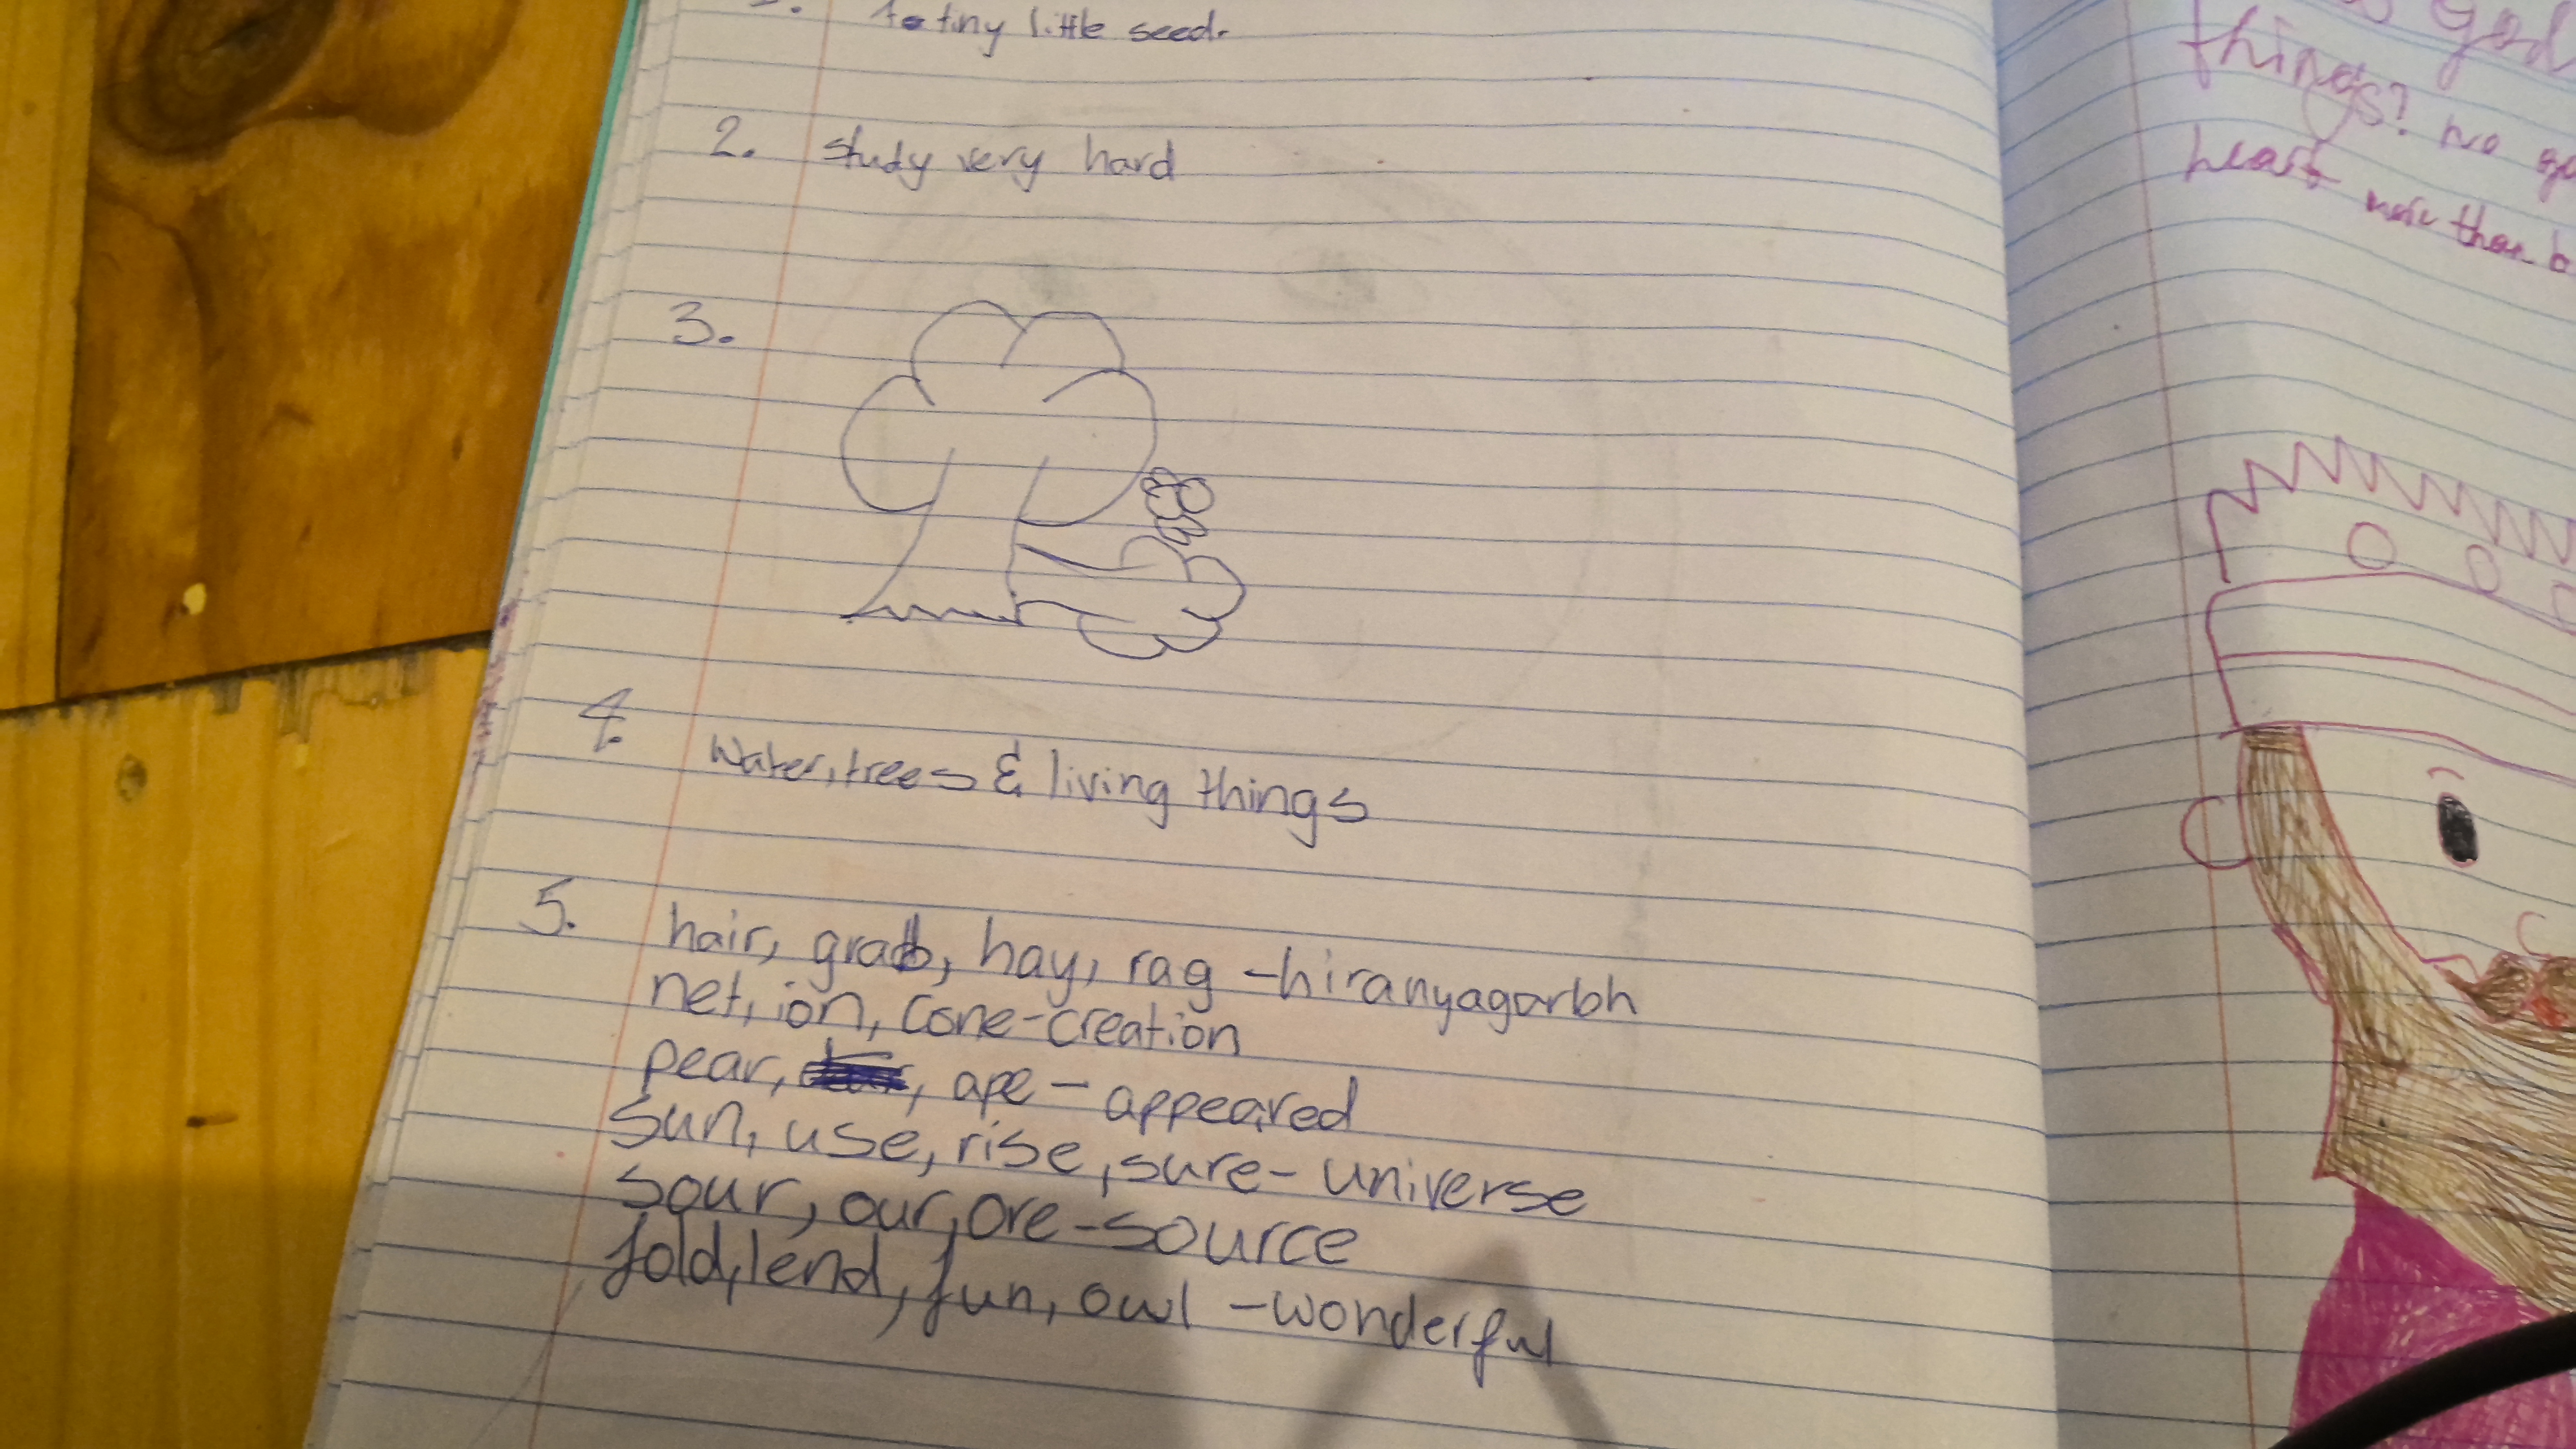 tiny little seed.
2. study very hard
3.
4. Water, trees & living things
5. hair, grab, hay, rag - hiranyagarbh
net, ion, cone - creation
pear, , ape - appeared
sun, use, rise, sure - universe
sour, our, ore - source
fold, lend, fun, owl - wonderful
god
things? No
heart more than